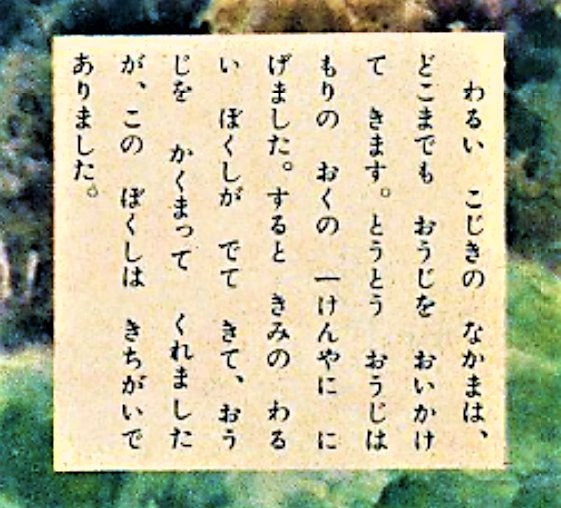 わるい こじきの なかまは、
どこまでも おうじを おいかけ
て きます。とうとう おうじは
もりの おくの 一けんやに に
げました。すると きみの わる
い ぼくしが でて きて、おう
じを かくまって くれました
が、この ぼくしは きちがいで
ありました。